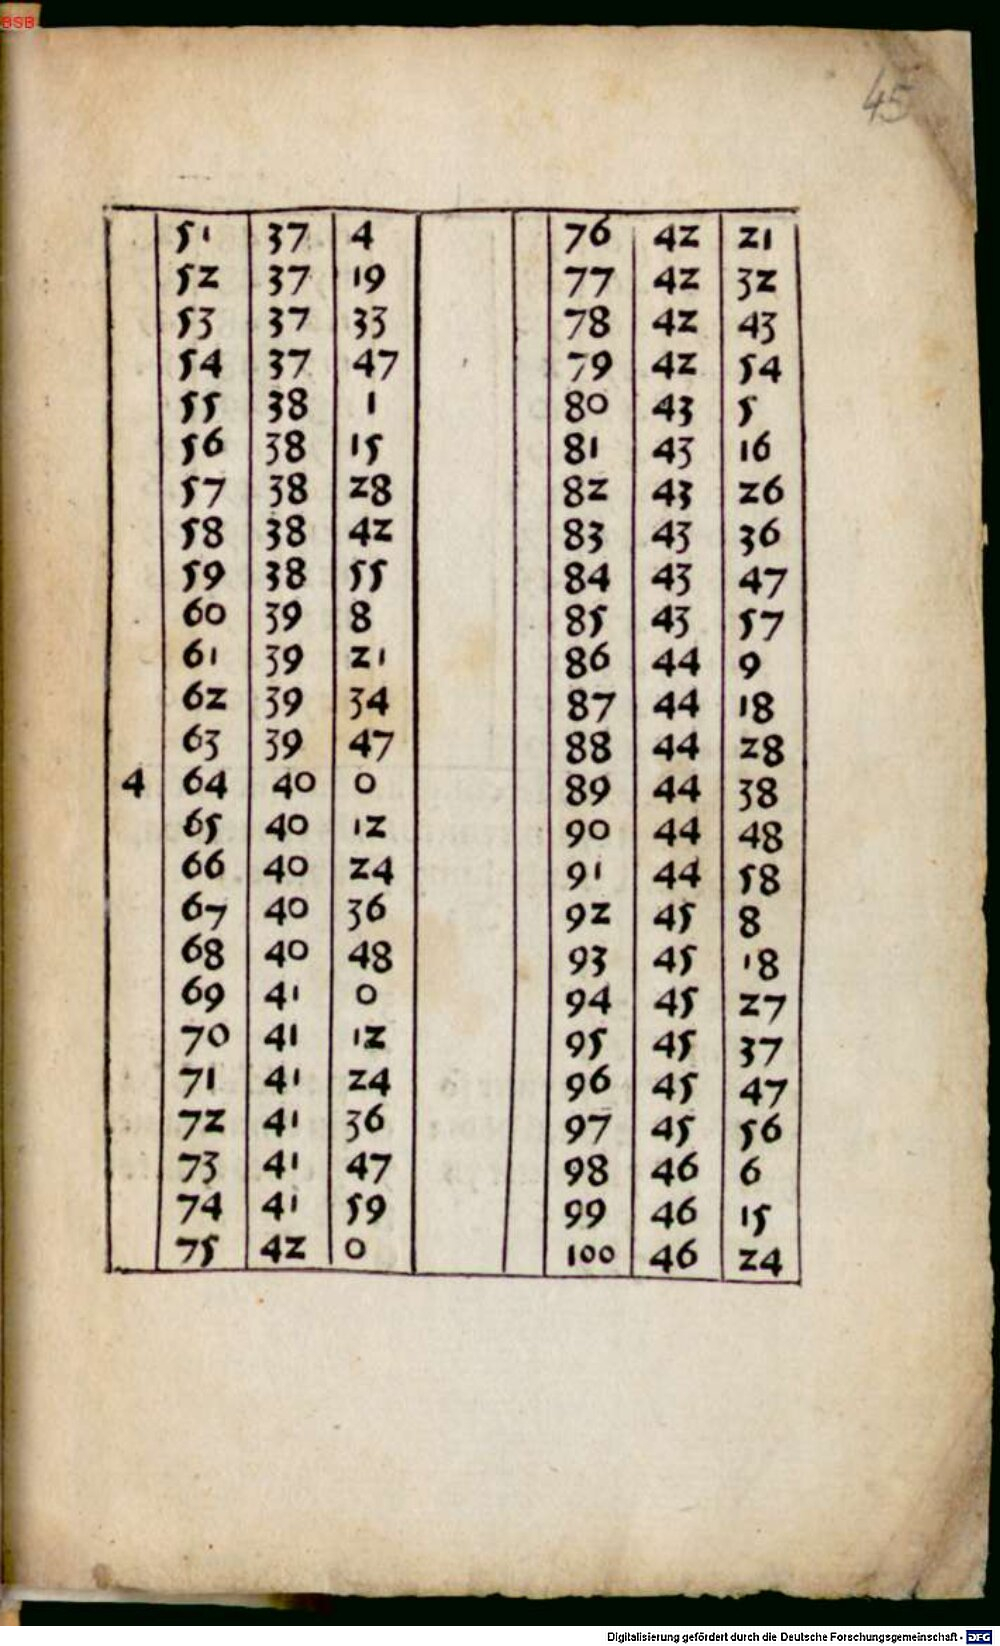 BSB
45
51 37 4 76 42 21
52 37 19 77 42 32
53 37 33 78 42 43
54 37 47 79 42 54
55 38 1 80 43 5
56 38 15 81 43 16
57 38 28 82 43 26
58 38 42 83 43 36
59 38 55 84 43 47
60 39 8 85 43 57
61 39 21 86 44 9
62 39 34 87 44 18
63 39 47 88 44 28
4 64 40 0 89 44 38
65 40 12 90 44 48
66 40 24 91 44 58
67 40 36 92 45 8
68 40 48 93 45 18
69 41 0 94 45 27
70 41 12 95 45 37
71 41 24 96 45 47
72 41 36 97 45 56
73 41 47 98 46 6
74 41 59 99 46 15
75 42 0 100 46 24
Digitalisierung gefördert durch die Deutsche Forschungsgemeinschaft - DFG